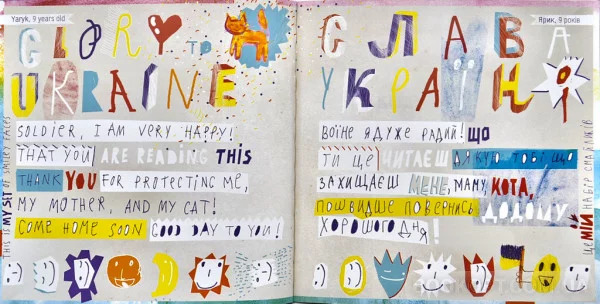 Yaryk, 9 years old
GLORY TO
UKRAINE
SOLDIER, I AM VERY HAPPY!
THAT YOU ARE READING THIS
THANK YOU FOR PROTECTING ME,
MY MOTHER, AND MY CAT!
COME HOME SOON GOOD DAY TO YOU!
THIS IS MY SIT OF SMILEY FACES
Ярик, 9 років
СЛАВА
УКРАЇНІ
ВОЇНЕ Я ДУЖЕ РАДИЙ! ЩО
ТИ ЦЕ ЧИТАЄШ ДЯКУЮ ТОБІ, ЩО
ЗАХИЩАЄШ МЕНЕ, МАМУ, КОТА,
ПОШВИДШЕ ПОВЕРНИСЬ ДОДОМУ
ХОРОШОГО ДНЯ!
ЦЕ МІЙ НАБІР СМАЙЛИКІВ